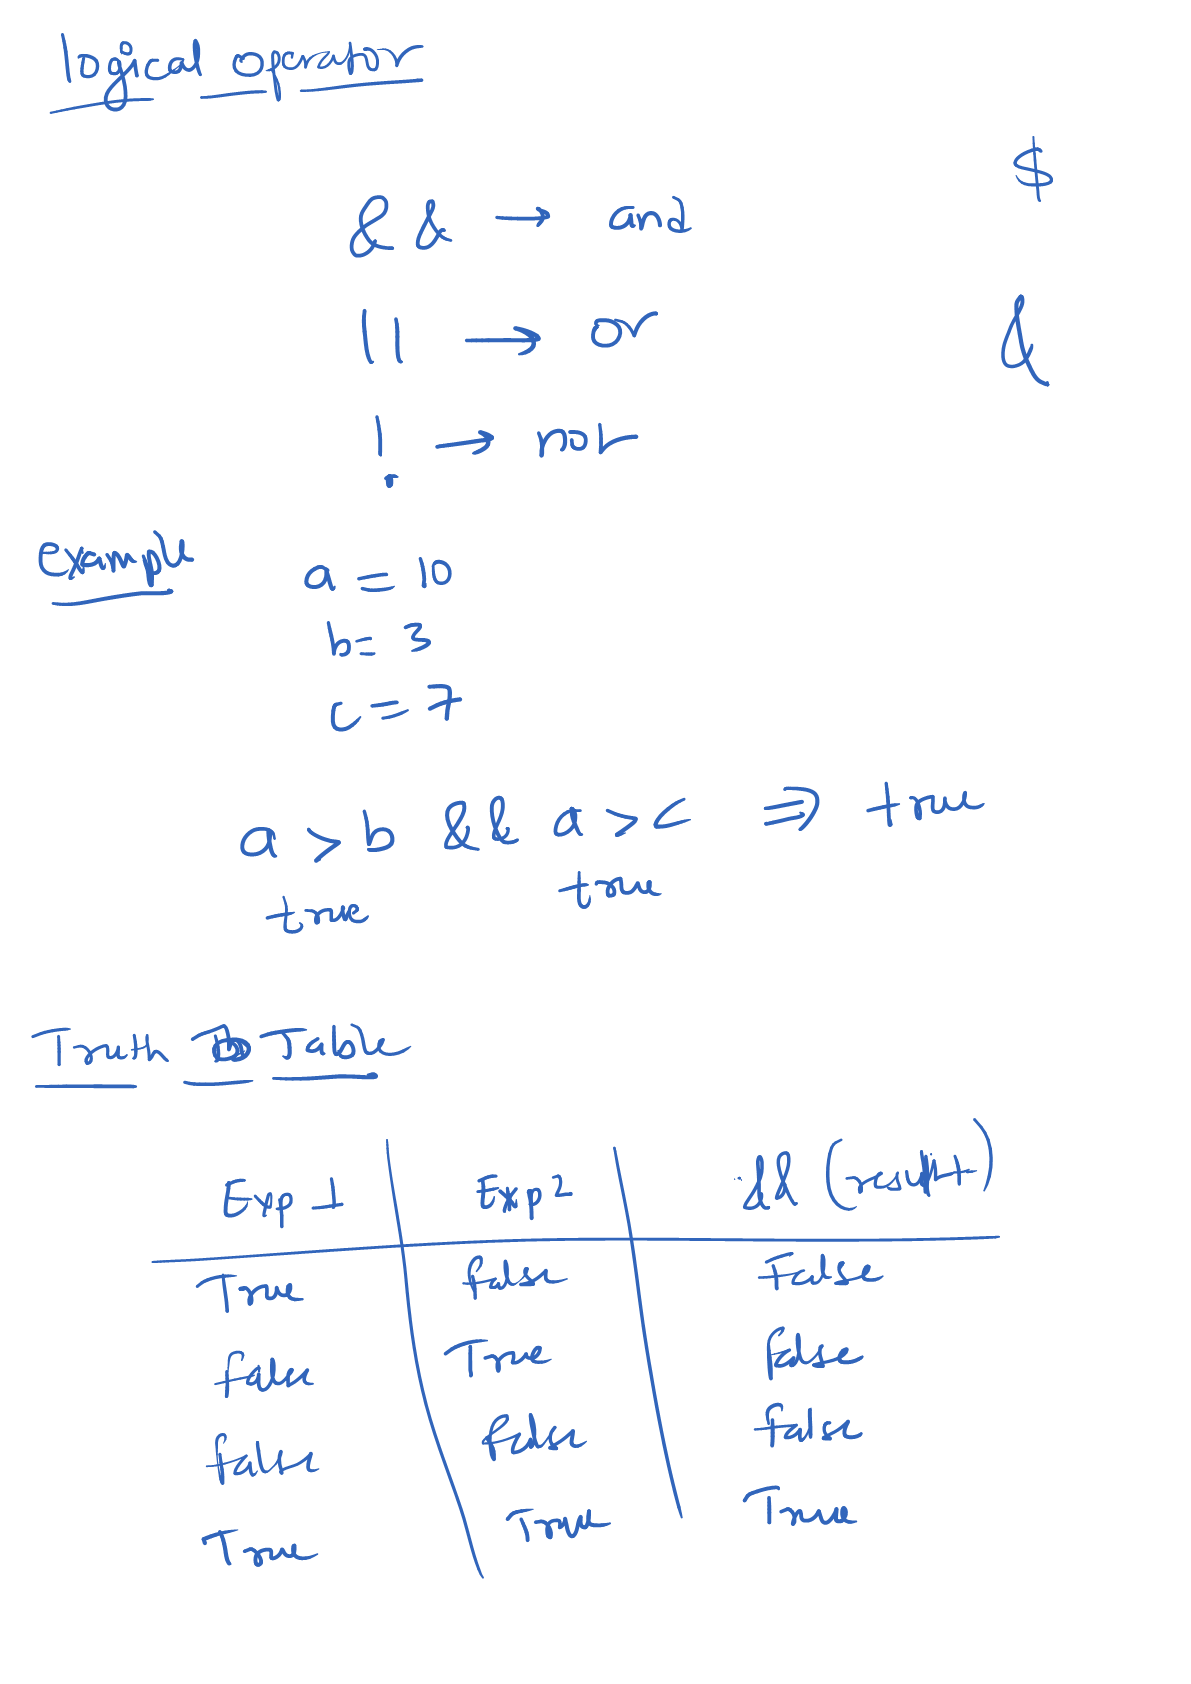 logical operator
$
&& → and
|| → or
&
! → not
example
a = 10
b = 3
c = 7
a > b && a > c ⇒ true
true true
Truth Table
Exp 1 Exp 2 && (result)
True false False
false True false
false false false
True True True